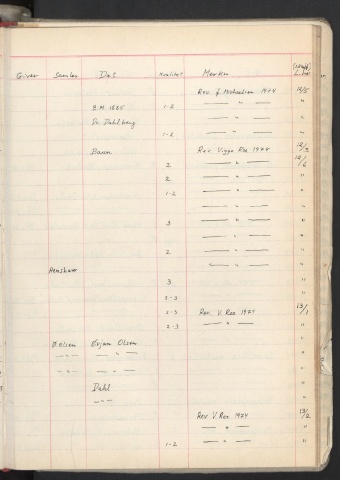 Giver Samler Det Kvalitet Merkn
Rev. J. Michaelsen 1974 12/5
B.M. 1885 1-2 — " — "
Dr. Dahlberg — " — "
1-2 — " — "
Baum Rev. Viggo Ree 1974 12/3
2 — " — 12/6
2 — " — "
1-2 — " — "
— " — "
3 — " — "
— " — "
2 — " — "
— " — "
Henshaw "
3 "
2-3 "
2-3 Rev. V. Ree 1974 13/1
2-3 — " — "
Ø. Olsen Ørjan Olsen "
— " — — " — "
— " — — " — "
Dahl "
— " — "
Rev V. Ree 1974 13/2
— " — "
1-2 — " — "